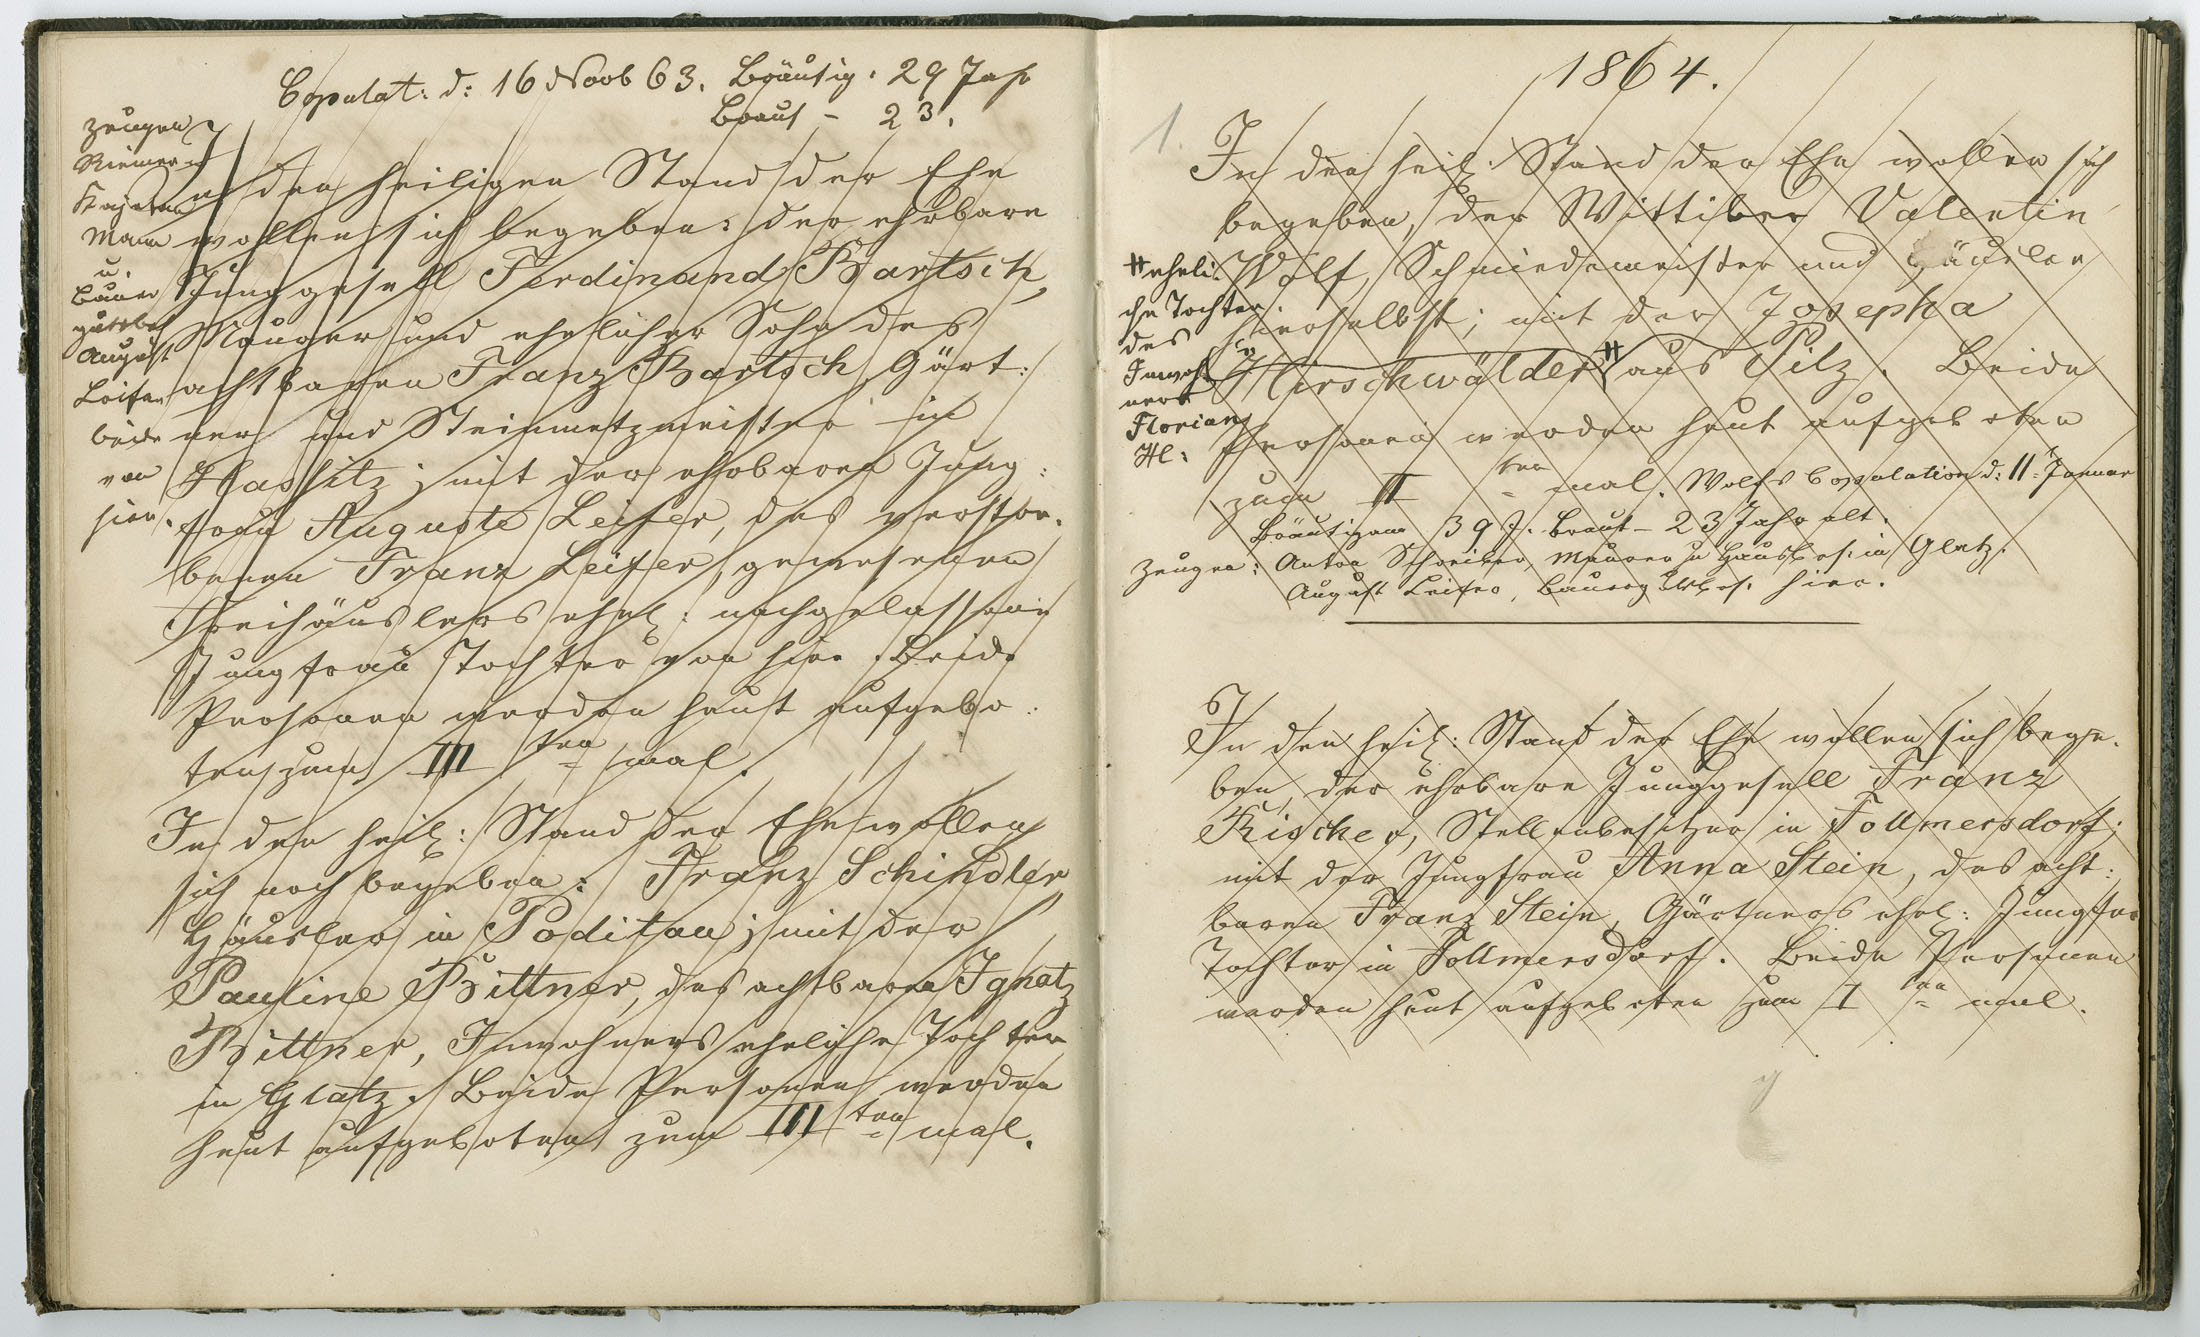 Copulat: d: 16 Novb 63. Bräutig. 29 Jahr
Braut - 23.
Zeugen
Riemer
Kajetan
Mann
u.
Bauer
gutsbes
August
Leifer
beide
von
hier.
In den heiligen Stand der Ehe
wollen sich begeben: der ehrbare
Junggesell Ferdinand Bartsch,
Maurer und ehelicher Sohn des
achtbaren Franz Bartsch, Gärt:
ner und Steinmetzmeister in
Hassitz; mit der ehrbaren Jung:
frau Auguste Leifer, des verstor:
benen Franz Leifer, gewesenen
Freihäuslers ehel: nachgelassene
Jungfrau Tochter von hier. Beide
Personen werden heut aufgebo:
ten zum III ten mal.
In den heil: Stand der Ehe wollen
sich noch begeben: Franz Schindler
Häusler in Poditau; mit der
Pauline Bittner, des achtbaren Ignatz
Bittner, Inwohners eheliche Tochter
in Glatz. Beide Personen werden
heut aufgeboten zum III ten mal.
1864.
1.
In den heil. Stand der Ehe wollen sich
begeben, der Wittiber Valentin
Wolf, Schmiedemeister und Häusler
hierselbst; mit der Josepha
Hirschwälder # aus Pilz. Beide
Personen werden heut aufgeboten
zum II ten mal. Wolfs Copulation d: 11. Januar
Bräutigam 39 J. Braut - 23 Jahr alt.
Zeugen: Anton Schreiber, Maurer u Hausbes. in Glatz.
August Leifer, Bauergutsbes. hier.
# eheli:
che Tochter
des
Inwoh
ners
Florian
H:
In den heil: Stand der Ehe wollen sich bege:
ben, der ehrbare Junggesell Franz
Rischer, Stellenbesitzer in Follmersdorf;
mit der Jungfrau Anna Stein, des acht:
baren Franz Stein, Gärtners ehel: Jungfer
Tochter in Follmersdorf. Beide Personen
werden heut aufgeboten zum I ten mal.